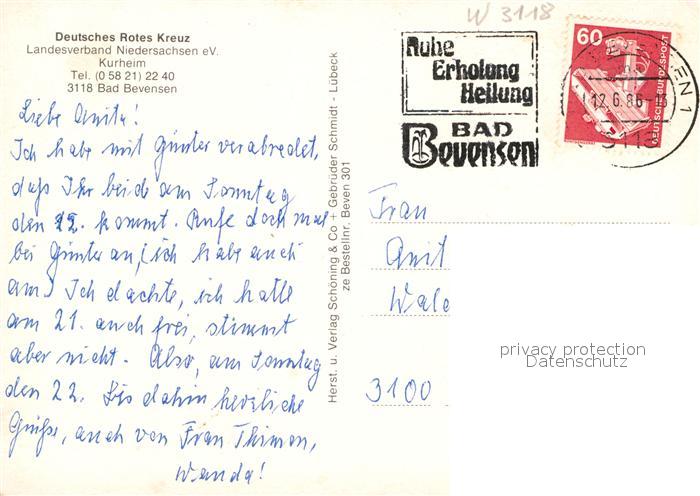 W 3118
Deutsches Rotes Kreuz
Landesverband Niedersachsen eV.
Kurheim
Tel. (0 58 21) 22 40
3118 Bad Bevensen
Ruhe
Erholung
Heilung
BAD
Bevensen
60
DEUTSCHE BUNDESPOST
12.6.86
Liebe Anita!
Ich habe mit Günter verabredet,
daß Ihr beide am Sonntag
den 22. kommt. Rufe doch mal
bei Günter an, (ich habe auch
am) Ich dachte, ich hatte
am 21. auch frei, stimmt
aber nicht. Also, am Sonntag
den 22. Bis dahin herzliche
Grüße, auch von Frau Thimon,
Wanda!
Herst. u. Verlag Schöning & Co + Gebrüder Schmidt - Lübeck
ze Bestellnr. Beven 301
Frau
Anit
3100
privacy protection
Datenschutz